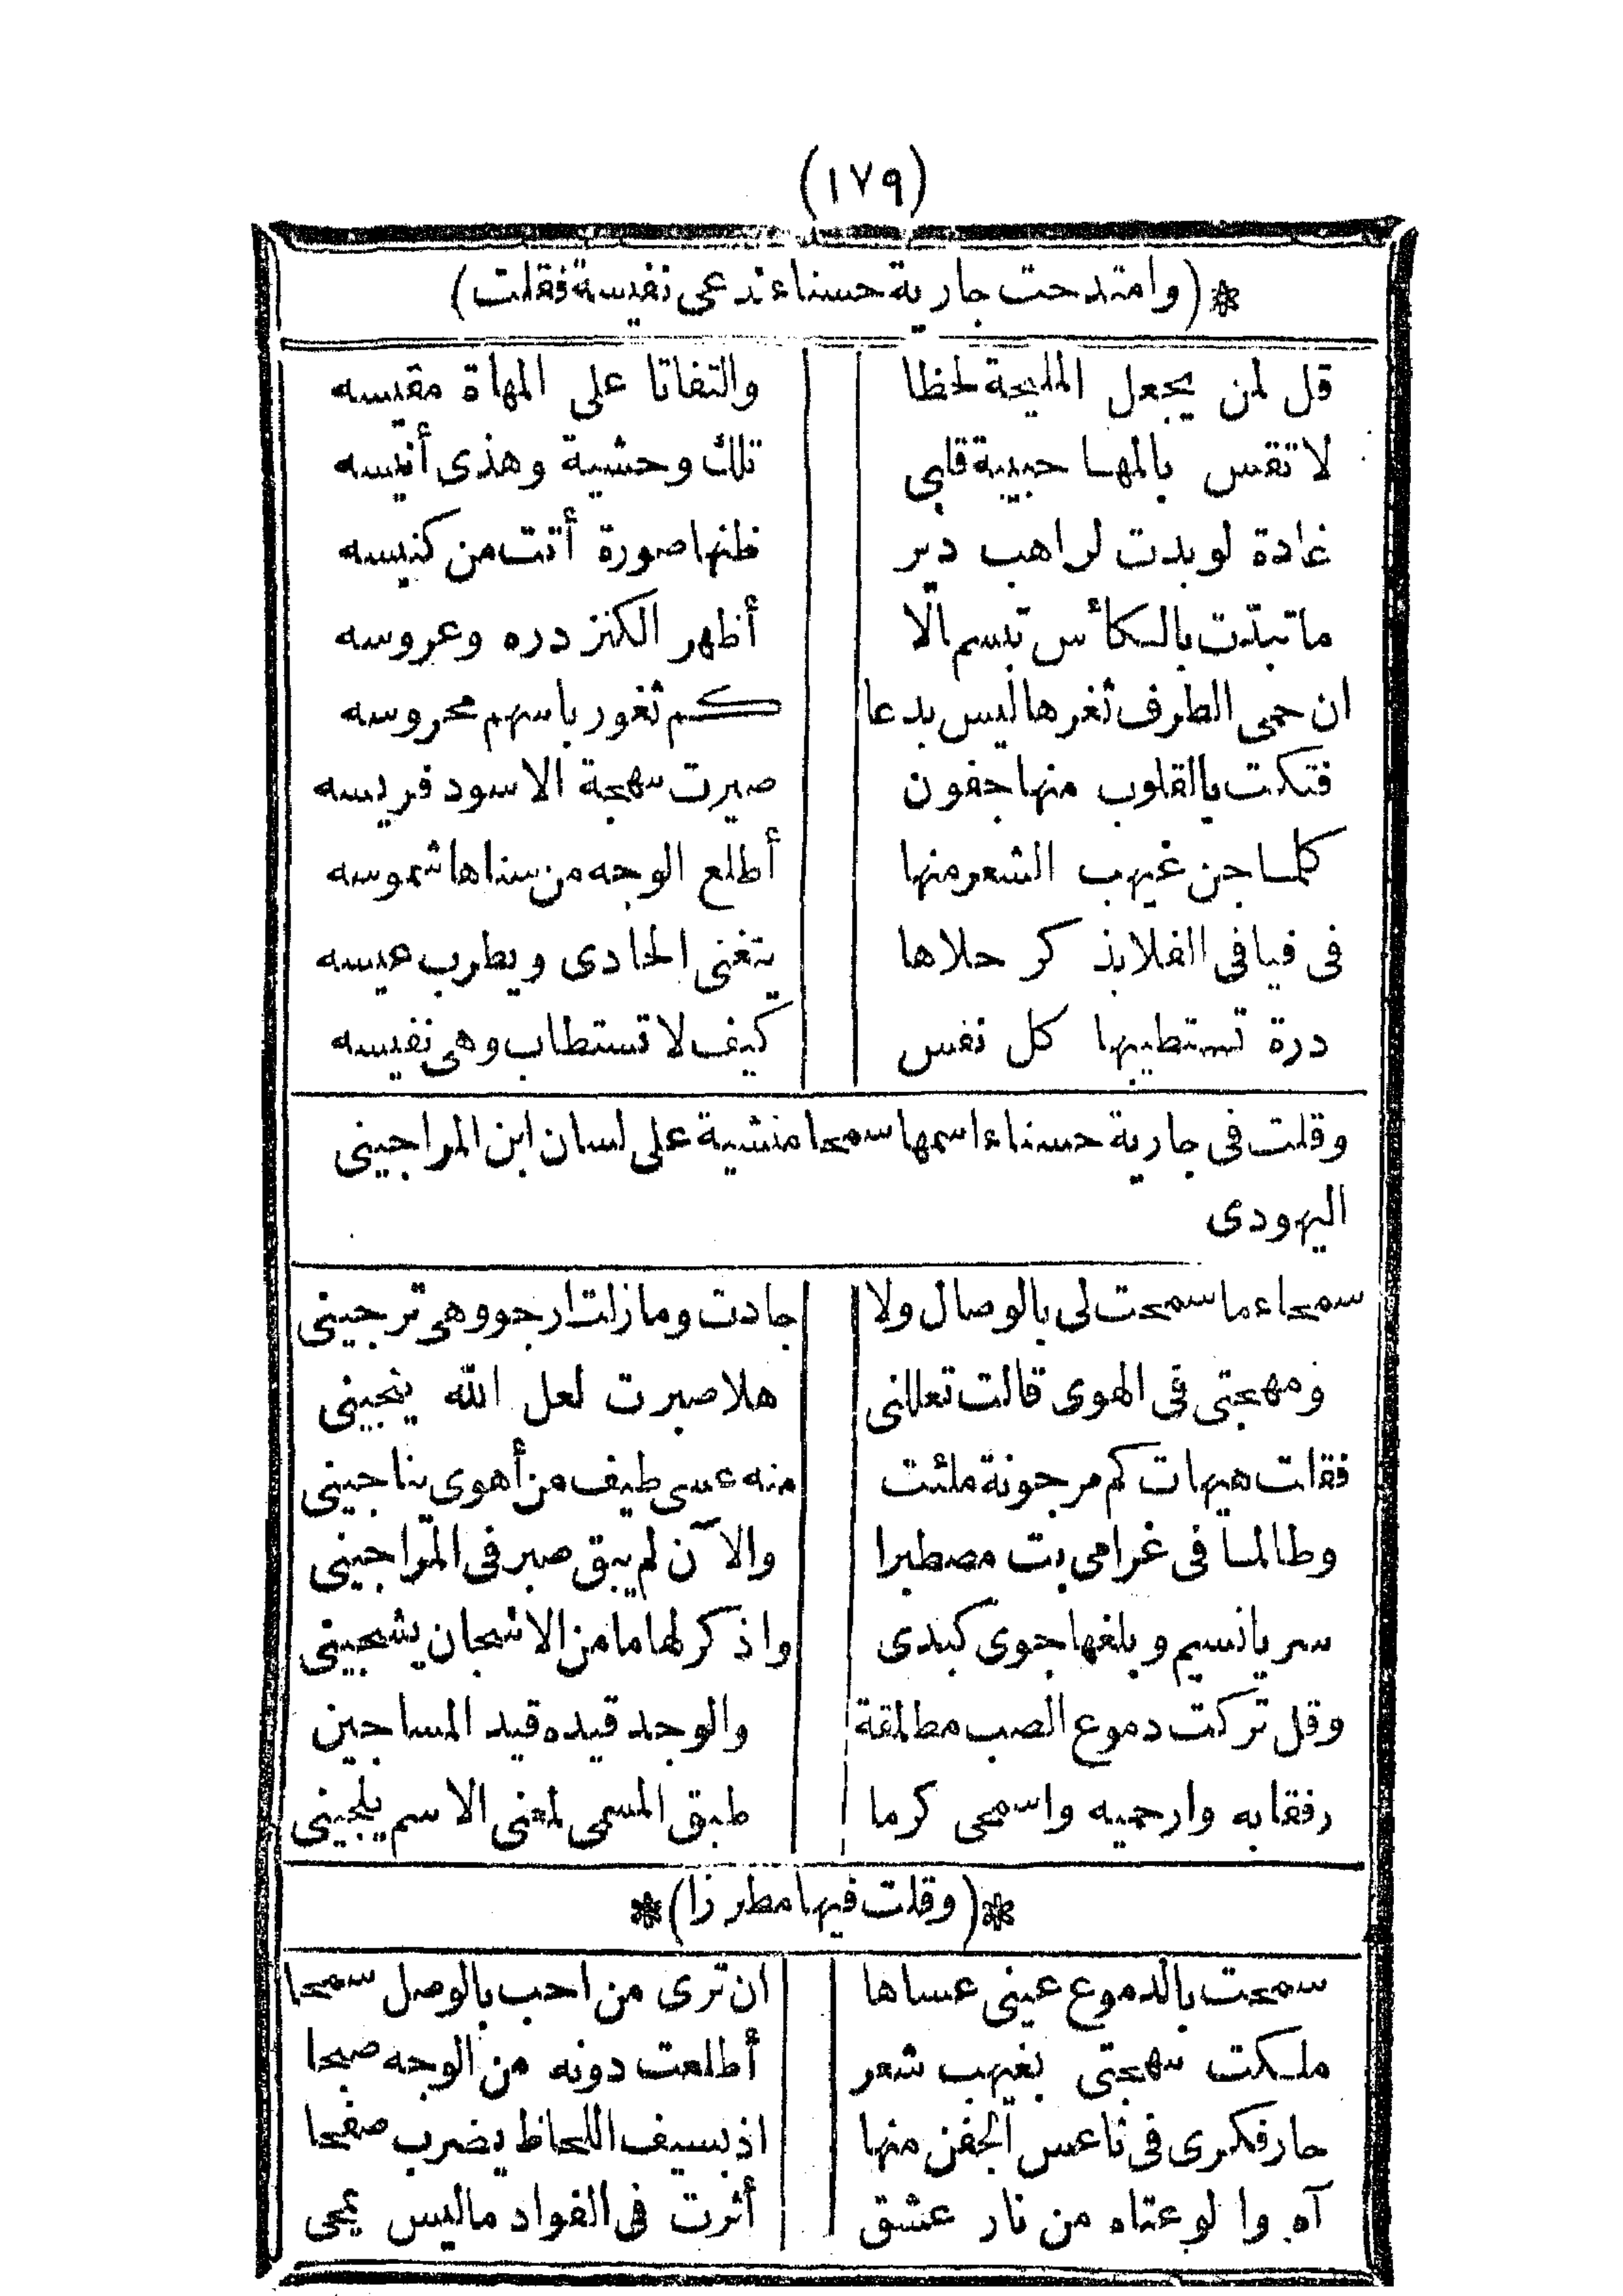 (١٧٩)
*(وامتدحت جارية حسناء تدعى نفيسة فقلت)
قل لمن يجعل المليحة لحظا والتفاتا على المهاة مقيسه
لا تقس بالمها حبيبة قلبى تلك وحشية وهذى أنيسه
غادة لو بدت لراهب دير ظنها صورة أتت من كنيسه
ما تبدّت بالكأس تبسم الّا أظهر الكنز دره وعروسه
ان حمى الطرف ثغرها ليس بدعا كم ثغور باسهم محروسه
فتكت بالقلوب منها جفون صيرت مهجة الاسود فريسه
كلما جن غيهب الشعر منها أطلع الوجه من سناها شموسه
فى فيافى الفلا بذكر حلاها يتغنى الحادى ويطرب عيسه
درة تستطيبها كل نفس كيف لا تستطاب وهى نفيسه
وقلت فى جارية حسناء اسمها سمحا منشية على لسان ابن المراجينى
اليهودى
سمحاء ما سمحت لى بالوصال ولا جادت وما زلت ارجو وهى ترجينى
ومهجتى فى الهوى قالت تعللنى هلا صبرت لعل الله ينجينى
فقلت هيهات كم مرجونة ملئت منه عسى طيف من أهوى يناجينى
وطالما فى غرامى بت مصطبرا والآن لم يبق صبر فى المراجينى
سر يا نسيم وبلغها جوى كبدى واذكر لها ما من الاشجان يشجينى
وقل تركت دموع الصب مطلقة والوجد قيده قيد المساجين
رفقا به وارحميه واسمحى كرما طبق المسمى لمعنى الاسم يلجينى
*(وقلت فيها مطرزا)*
سمحت بالدموع عينى عساها ان ترى من احب بالوصل سمحا
ملكت مهجتى بغيهب شعر أطلعت دونه من الوجه صبحا
حار فكرى فى ناعس الجفن منها اذ بسيف اللحاظ يضرب صفحا
آه وا لوعتاه من نار عشق أثرت فى الفواد ما ليس يمحى